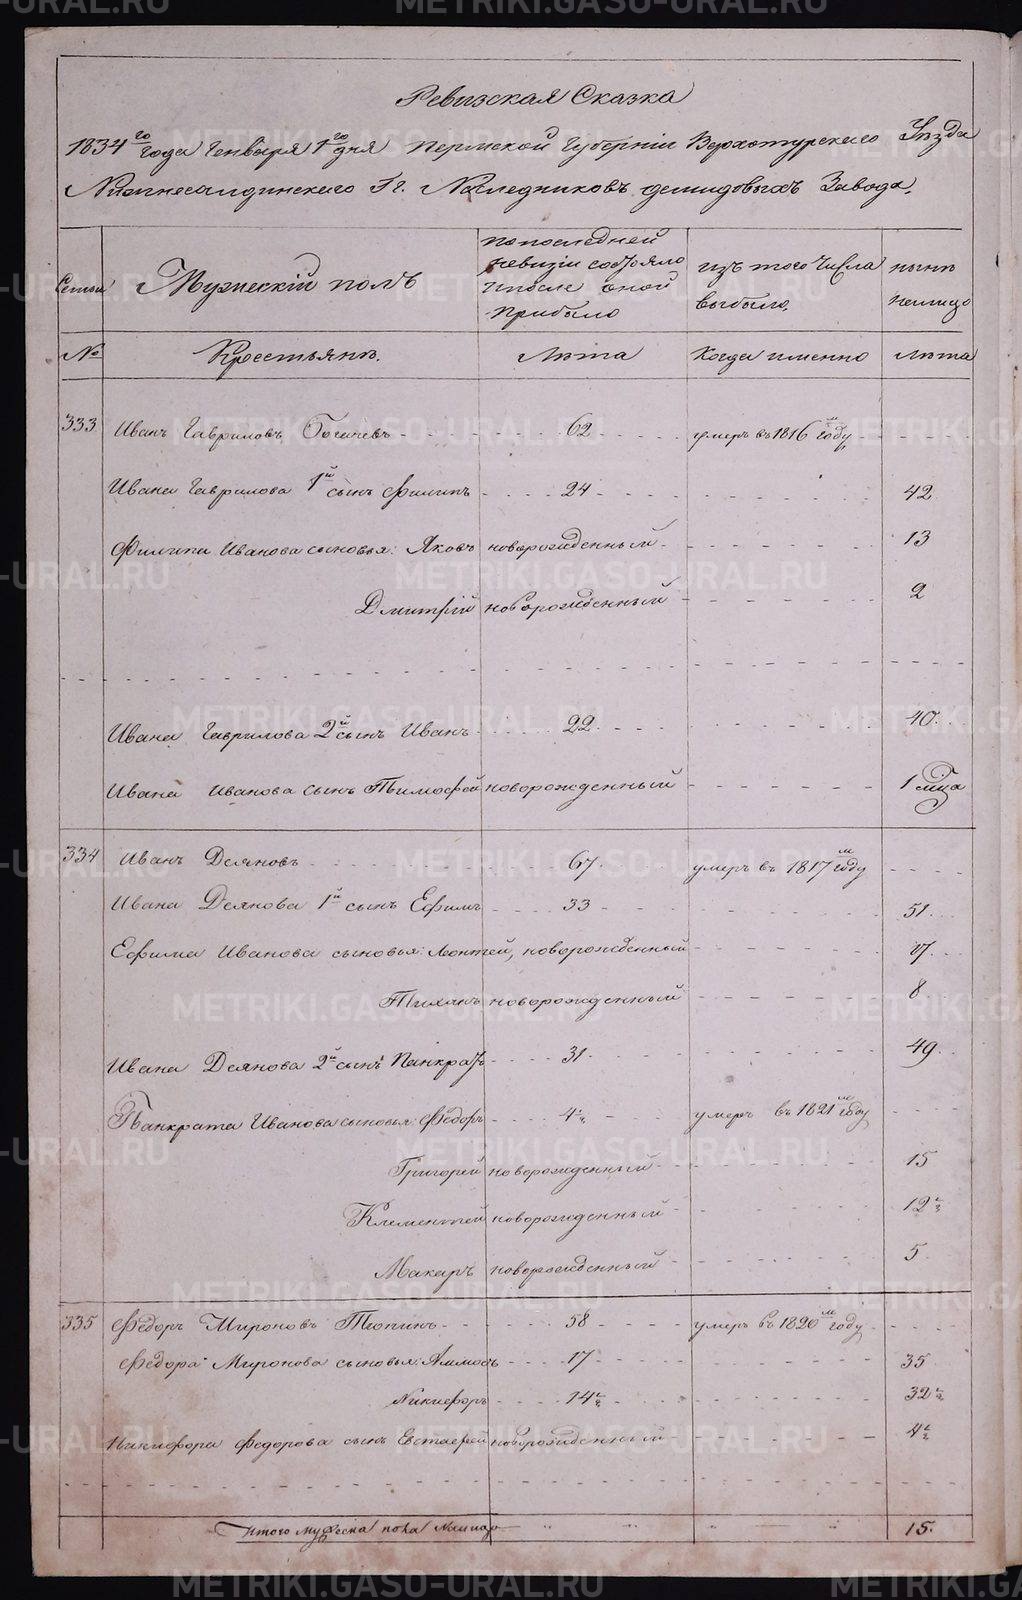 Ревизская Сказка
1834го года Генваря 1го дня Пермской Губерніи Верхотурскаго Уѣзда
Нижнесалдинскаго Гг. Наслѣдниковъ Демидовыхъ Завода.
Семьи Мужескій полъ По послѣдней ревизіи состояло и после оной прибыло Изъ того числа выбыло. Нынѣ на лицо
№ Крестьянѣ. Лѣта Когда именно Лѣта
333 Иванъ Гавриловъ 62 умеръ въ 1816м году
Ивана Гаврилова 1й сынъ Филипъ 24 42
Филипа Иванова сыновья: Яковъ новорожденный 13
Дмитрій новорожденный 2
Ивана Гаврилова 2й сынъ Иванъ 22 40
Ивана Иванова сынъ Тимофей новорожденный 1 мца
334 Иванъ Деяновъ 67 умеръ въ 1817м году
Ивана Деянова 1й сынъ Ефимъ 33 51
Ефима Иванова сыновья: Леонтей, новорожденный 17
Тихонъ новорожденный 8
Ивана Деянова 2й сынъ Панкратъ 31 49
Панкрата Иванова сыновья: Федоръ 4 умеръ въ 1821м году
Григорей новорожденный 15
Клементей новорожденный 12
Макаръ новорожденный 5
335 Федоръ Мироновъ Тюпинъ 58 умеръ въ 1820м году
Федора Миронова сыновья: 17 35
Никифоръ 14 32
Никифора Федорова сынъ Евстафей новорожденный 4
Итого мужеска пола налицо 15.
METRIKI.GASO-URAL.RU